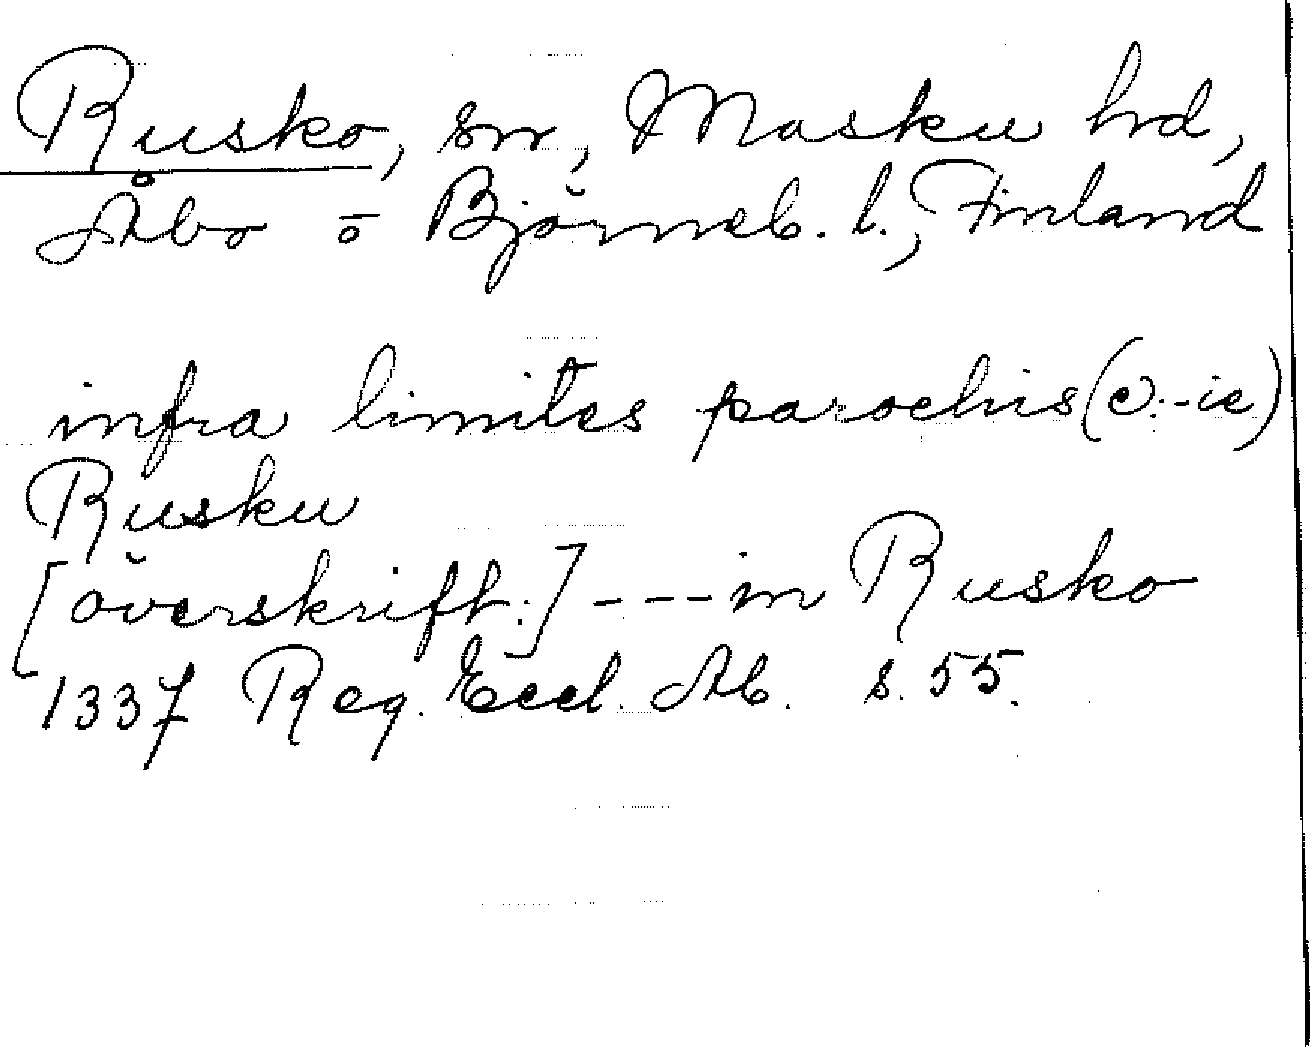 Rusko, sn, Masku hrd,
Åbo o Björneb. l., Finland
infra limites parochis (ɔ: -ie)
Rusku
[överskrift:] --- in Rusko
1337 Reg. Eccl. Ab. s. 55.